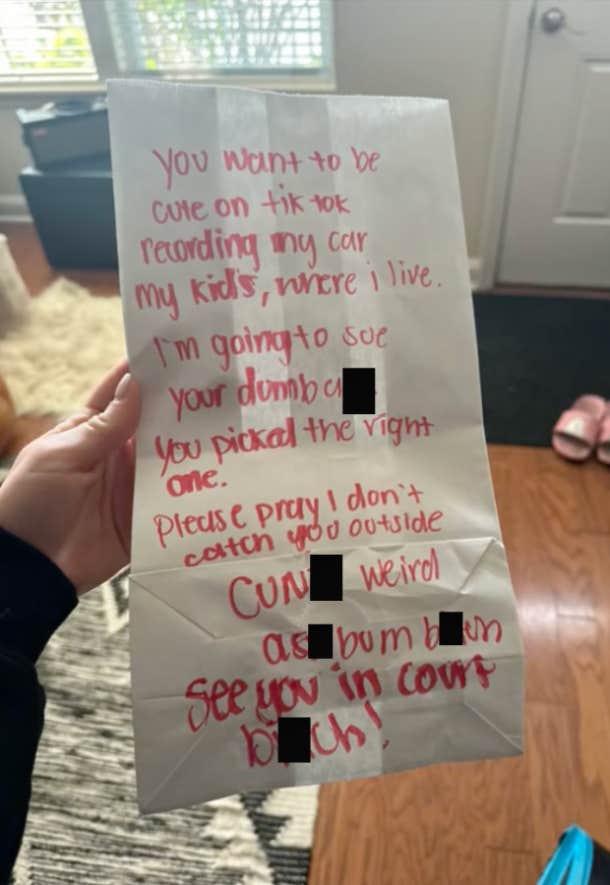 you want to be
cute on tik tok
recording my car
my kid's, where i live.
I'm going to sue
your dumb a
You picked the right
one.
Please pray I don't
catch you outside
CUN weird
as bum b ch
See you in court
b ch!